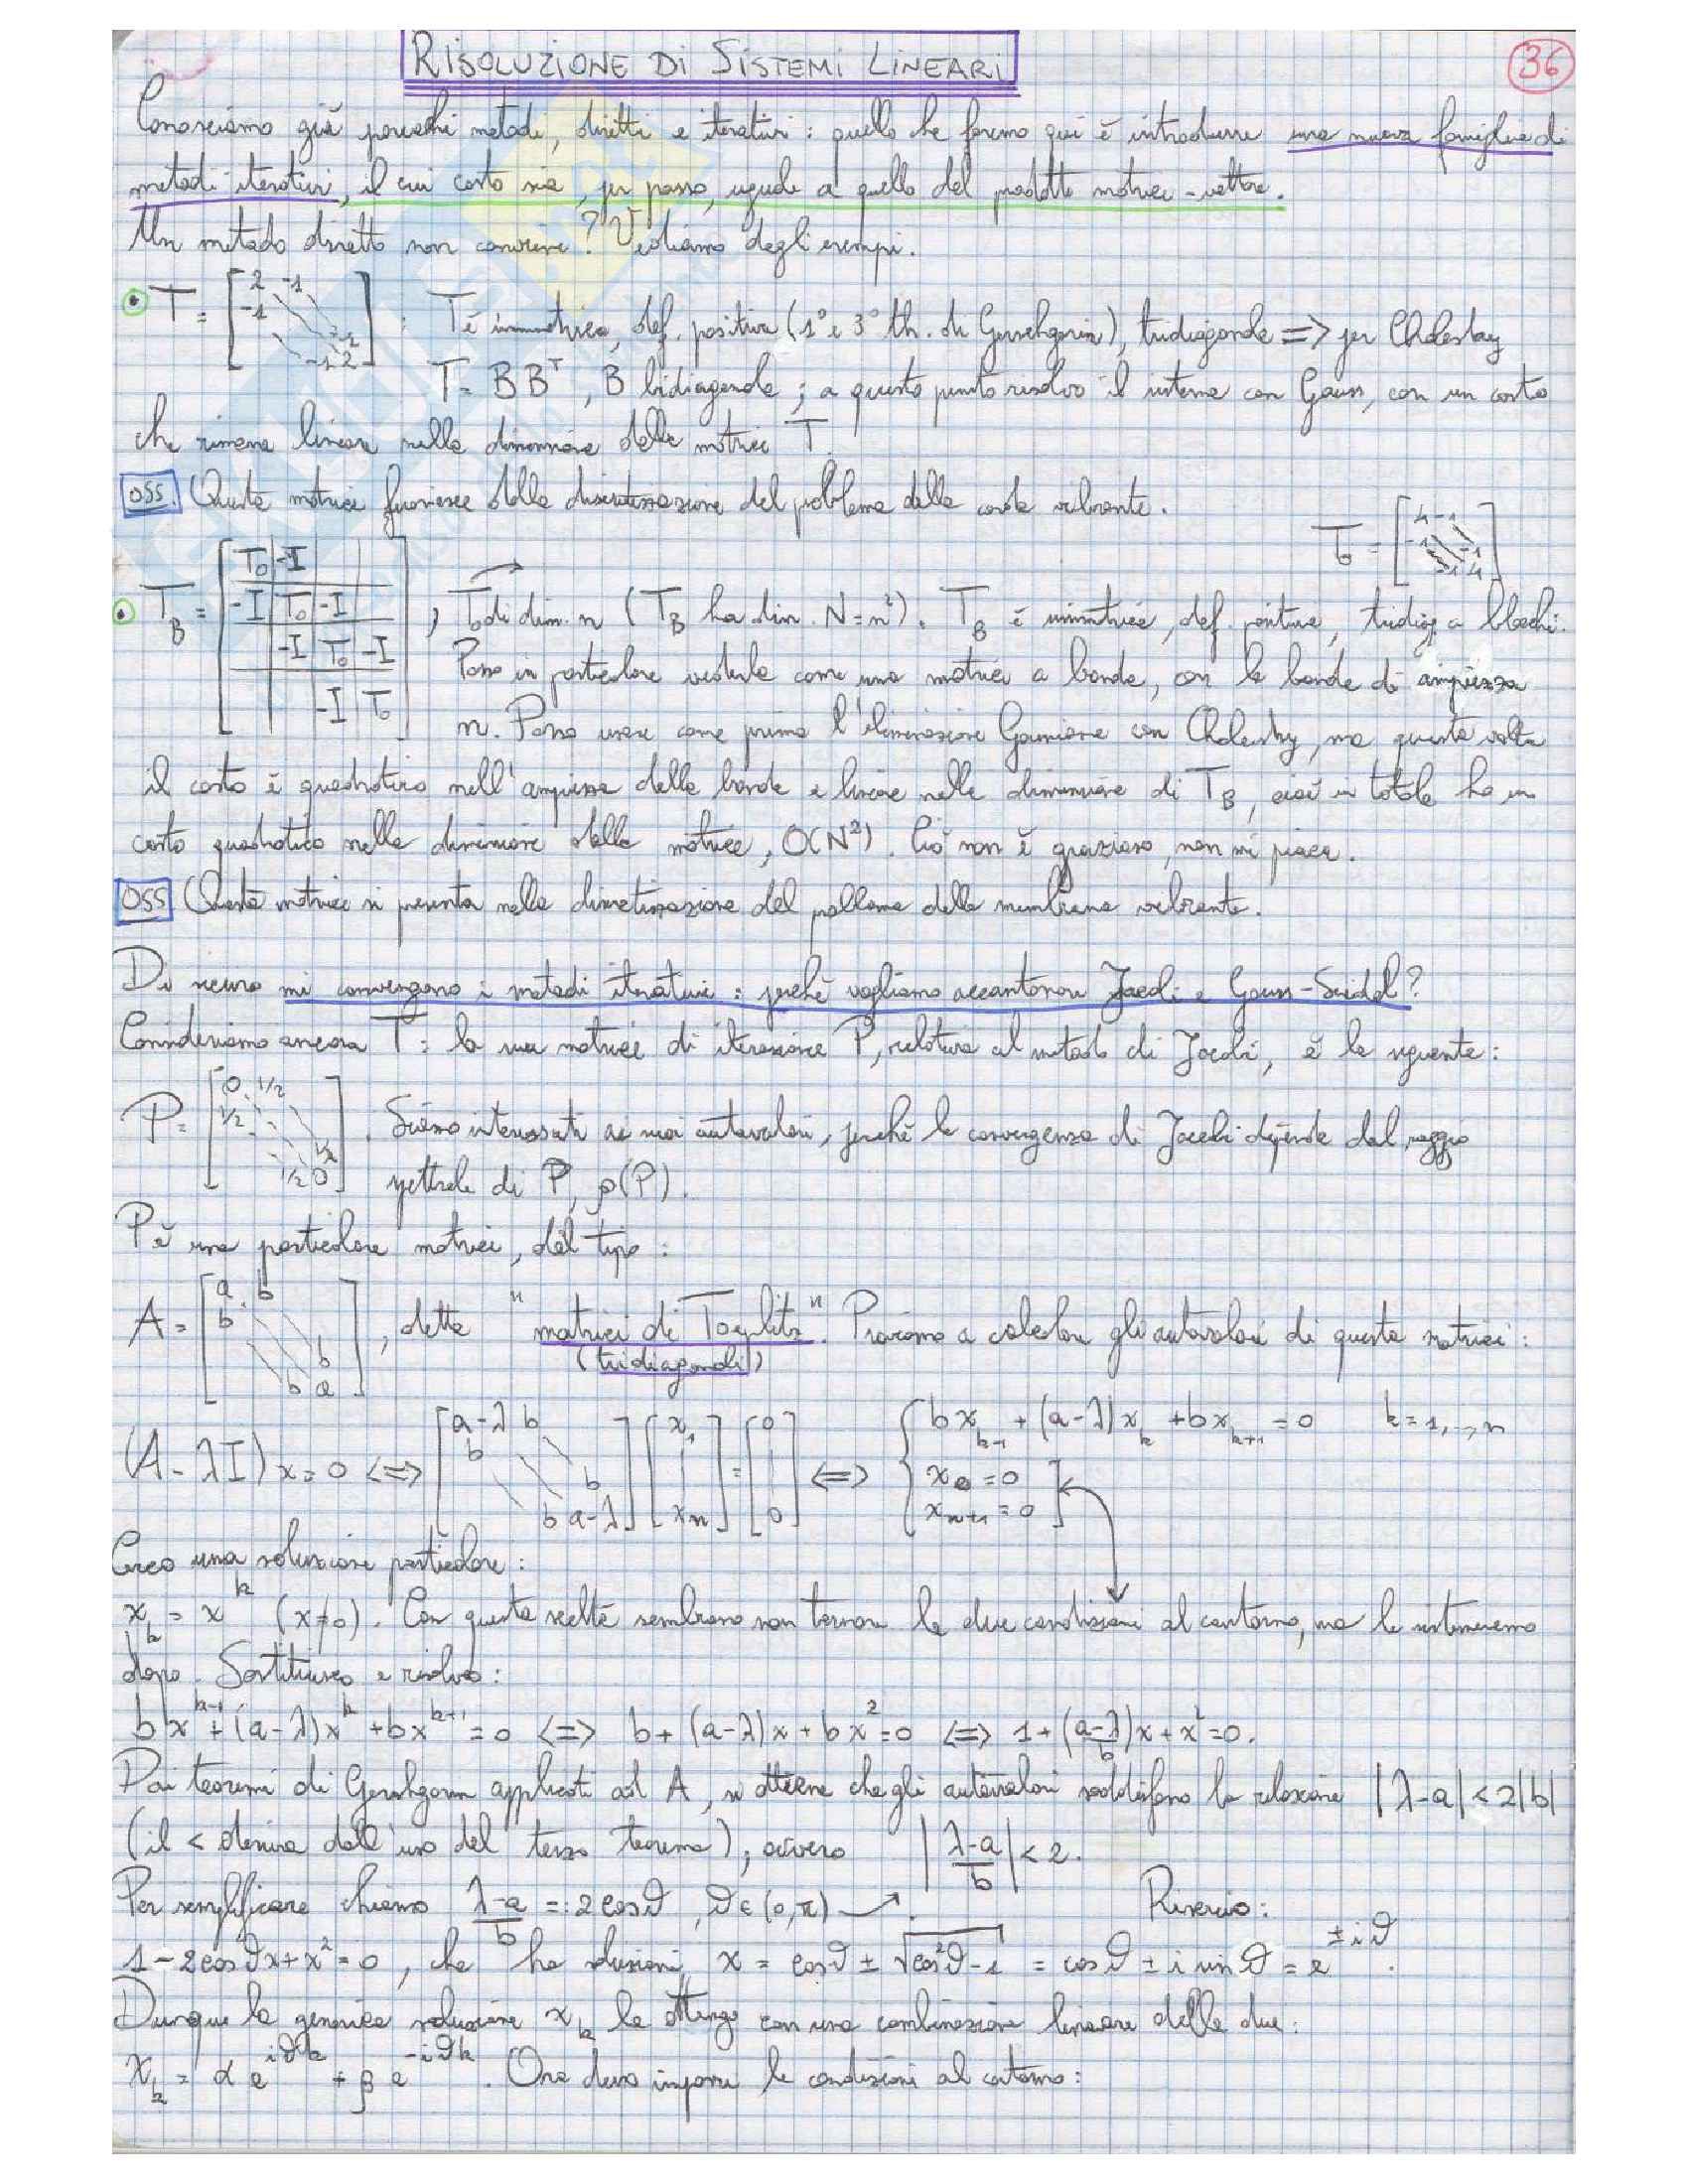 RISOLUZIONE DI SISTEMI LINEARI
36
Conosciamo già parecchi metodi, diretti e iterativi: quello che faremo qui è introdurre una nuova famiglia di
metodi iterativi, il cui costo sia, per passo, uguale a quello del prodotto matrice-vettore.
Un metodo diretto non conviene? Vediamo degli esempi.
• T = [2 -1 -1 -1 -1 2] : T è simmetrica, def. positiva (1° e 3° th. di Gershgorin), tridiagonale => per Cholesky
T = BB^T, B bidiagonale; a questo punto risolvo il sistema con Gauss, con un costo
che rimane lineare nella dimensione della matrice T.
OSS Questa matrice fuoriesce dalla discretizzazione del problema della corda vibrante.
T₀ = [4 -1 -1 -1 -1 4]
• T_B = [T₀ -I
-I T₀ -I
-I T₀ -I
-I T₀] , T₀ di dim. n (T_B ha dim. N=n²). T_B è simmetrica, def. positiva, tridiag. a blocchi.
Posso in particolare vederla come una matrice a banda, con la banda di ampiezza
n. Posso usare come prima l'eliminazione Gaussiana con Cholesky, ma questa volta
il costo è quadratico nell'ampiezza della banda e lineare nella dimensione di T_B, cioè in totale ho un
costo quadratico nella dimensione della matrice, O(N²). Ciò non è grazioso, non mi piace.
OSS Questa matrice si presenta nella discretizzazione del problema della membrana vibrante.
Di sicuro mi convengono i metodi iterativi: perchè vogliamo accantonare Jacobi e Gauss-Seidel?
Consideriamo ancora T: la sua matrice di iterazione P, relativa al metodo di Jacobi, è la seguente:
P = [0 1/2 1/2 1/2 1/2 0] . Siamo interessati ai suoi autovalori, perchè la convergenza di Jacobi dipende dal raggio
spettrale di P, ρ(P).
P è una particolare matrice, del tipo:
A = [a b b b b a] , detta "matrici di Toeplitz". Proviamo a calcolare gli autovalori di questa matrice:
(tridiagonali)
(A - λI)x = 0 <=> [a-λ b b b b a-λ] [x₁ xₙ] = [0 0] <=> { bx_{k-1} + (a-λ)x_k + bx_{k+1} = 0 k=1,..,n
x₀ = 0
x_{n+1} = 0
Cerco una soluzione particolare:
x_k = x^k (x≠0). Con questa scelta sembrano non tornare le due condizioni al contorno, ma le sistemeremo
dopo. Sostituisco e risolvo:
bx^{k-1} + (a-λ)x^k + bx^{k+1} = 0 <=> b + (a-λ)x + bx² = 0 <=> 1 + (a-λ/b)x + x² = 0.
Dai teoremi di Gershgorin applicati ad A, si ottiene che gli autovalori soddisfano la relazione |λ-a| < 2|b|
(il < deriva dall'uso del terzo teorema), ovvero |λ-a/b| < 2.
Per semplificare chiamo λ-a/b =: 2cosϑ, ϑ∈(0,π) Riscrivo:
1 - 2cosϑx + x² = 0, che ha soluzioni x = cosϑ ± √cos²ϑ-1 = cosϑ ± i sinϑ = e^{±iϑ}.
Dunque la generica soluzione x_k la ottengo con una combinazione lineare delle due:
x_k = αe^{iϑk} + βe^{-iϑk}. Ora devo imporre le condizioni al contorno: